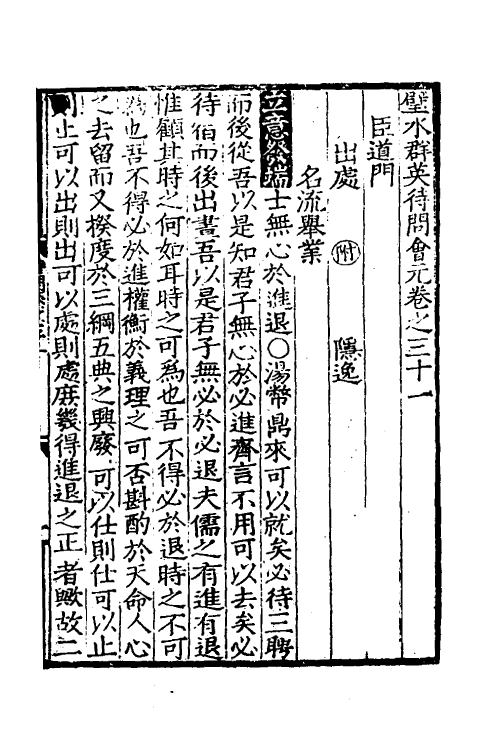 璧水群英待問會元卷之三十一
臣道門
出處 附 隱逸
名流舉業
立意發端士無心於進退○湯幣鼎來可以就矣必待三聘
而後從吾以是知君子無心於必進齊言不用可以去矣必
待宿而後出晝吾以是君子無必於必退夫儒之有進有退
惟顧其時之何如耳時之可為也吾不得必於退時之不可
為也吾不得必於進權衡於義理之可否斟酌於天命人心
之去留而又揆度於三綱五典之興廢可以仕則仕可以止
則止可以出則出可以處則處庶幾得進退之正者歟故二